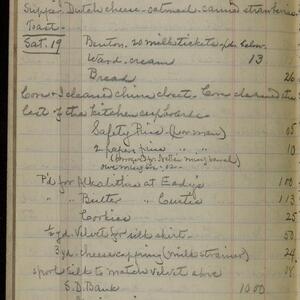 Supper: Dutch cheese - oatmeal - canned strawberries
Toast -
Sat. 19 Benton. 20 milk tickets pd. below.
Ward - cream 13
Bread 26
Cora & I cleaned china closet. Cora cleaned the
last of the kitchen cupboards.
Safety Pins 05
2 papers pins " " 10
P'd for Alkalithia at Eady's 100
" " Butter " Curtis' 113
Cookies 25
½ yd. velvet for silk skirt - 50
3 yd. cheesecapping (milk strainer) 24
spool silk to match velvet above 18
S. D. Bank 10 00